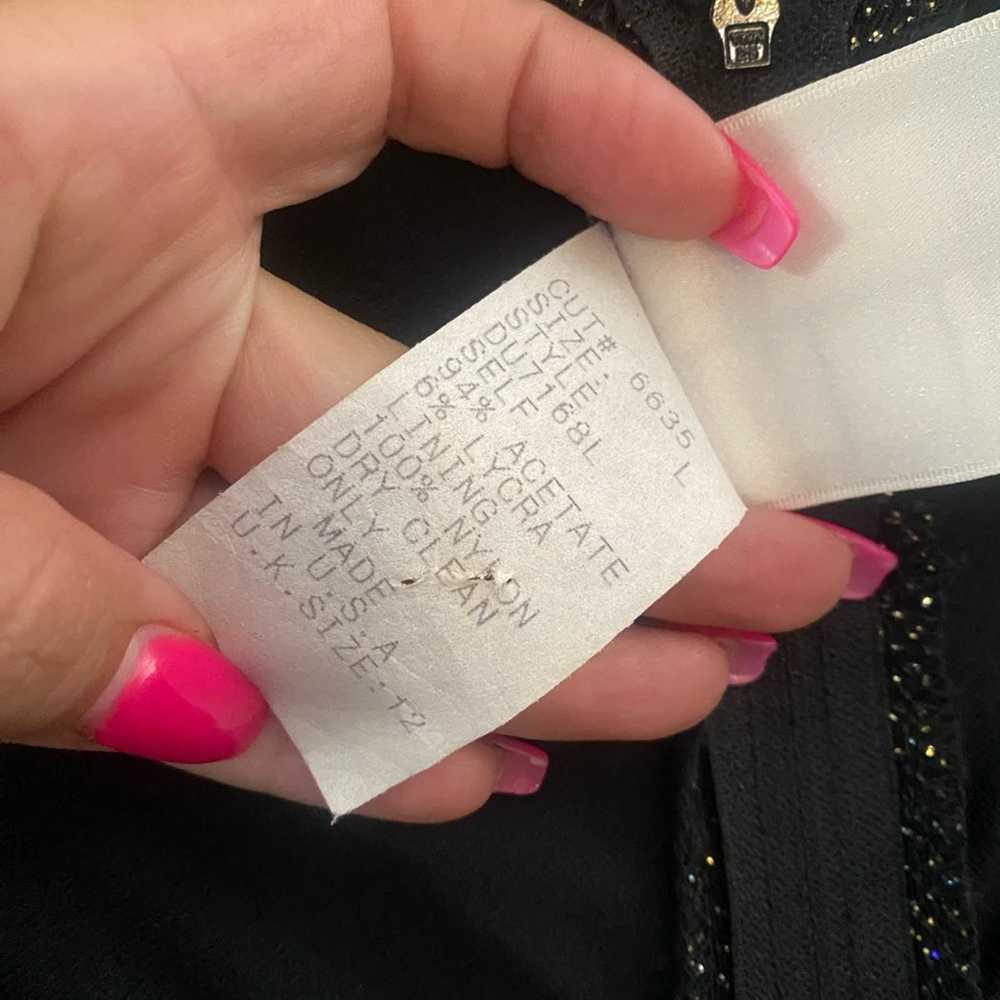 CUT# 6635
SIZE: L
STYLE
DU7168L
SELF
94% ACETATE
6% LYCRA
LINING
100% NYLON
DRY CLEAN
ONLY
MADE
IN U.S.A
U.K.SIZE-12